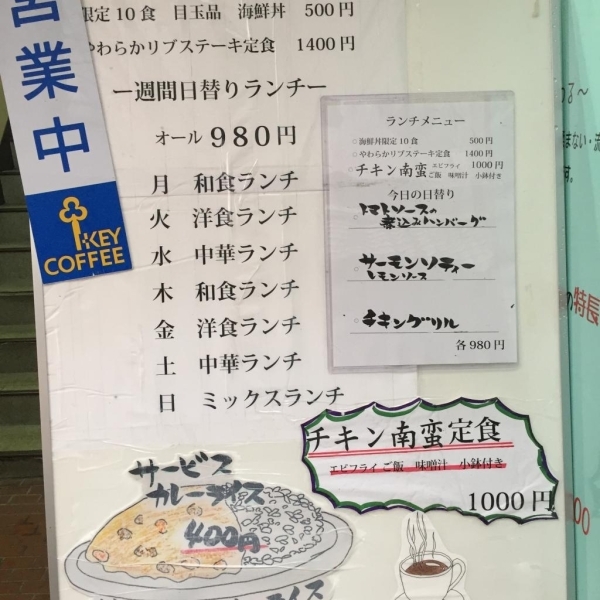 営業中
KEY
COFFEE
限定10食 目玉品 海鮮丼 500円
やわらかリブステーキ定食 1400円
ー週間日替りランチー
オール 980円
月 和食ランチ
火 洋食ランチ
水 中華ランチ
木 和食ランチ
金 洋食ランチ
土 中華ランチ
日 ミックスランチ
ランチメニュー
○海鮮丼限定10食 500円
○やわらかリブステーキ定食 1400円
○チキン南蛮 エビフライ 1000円
ご飯 味噌汁 小鉢付き
今日の日替り
トマトソースの
煮込みハンバーグ
サーモンソティー
レモンソース
チキングリル
各980円
チキン南蛮定食
エビフライ ご飯 味噌汁 小鉢付き
1000円
サービス
カレーライス
400円
ライス
の特長